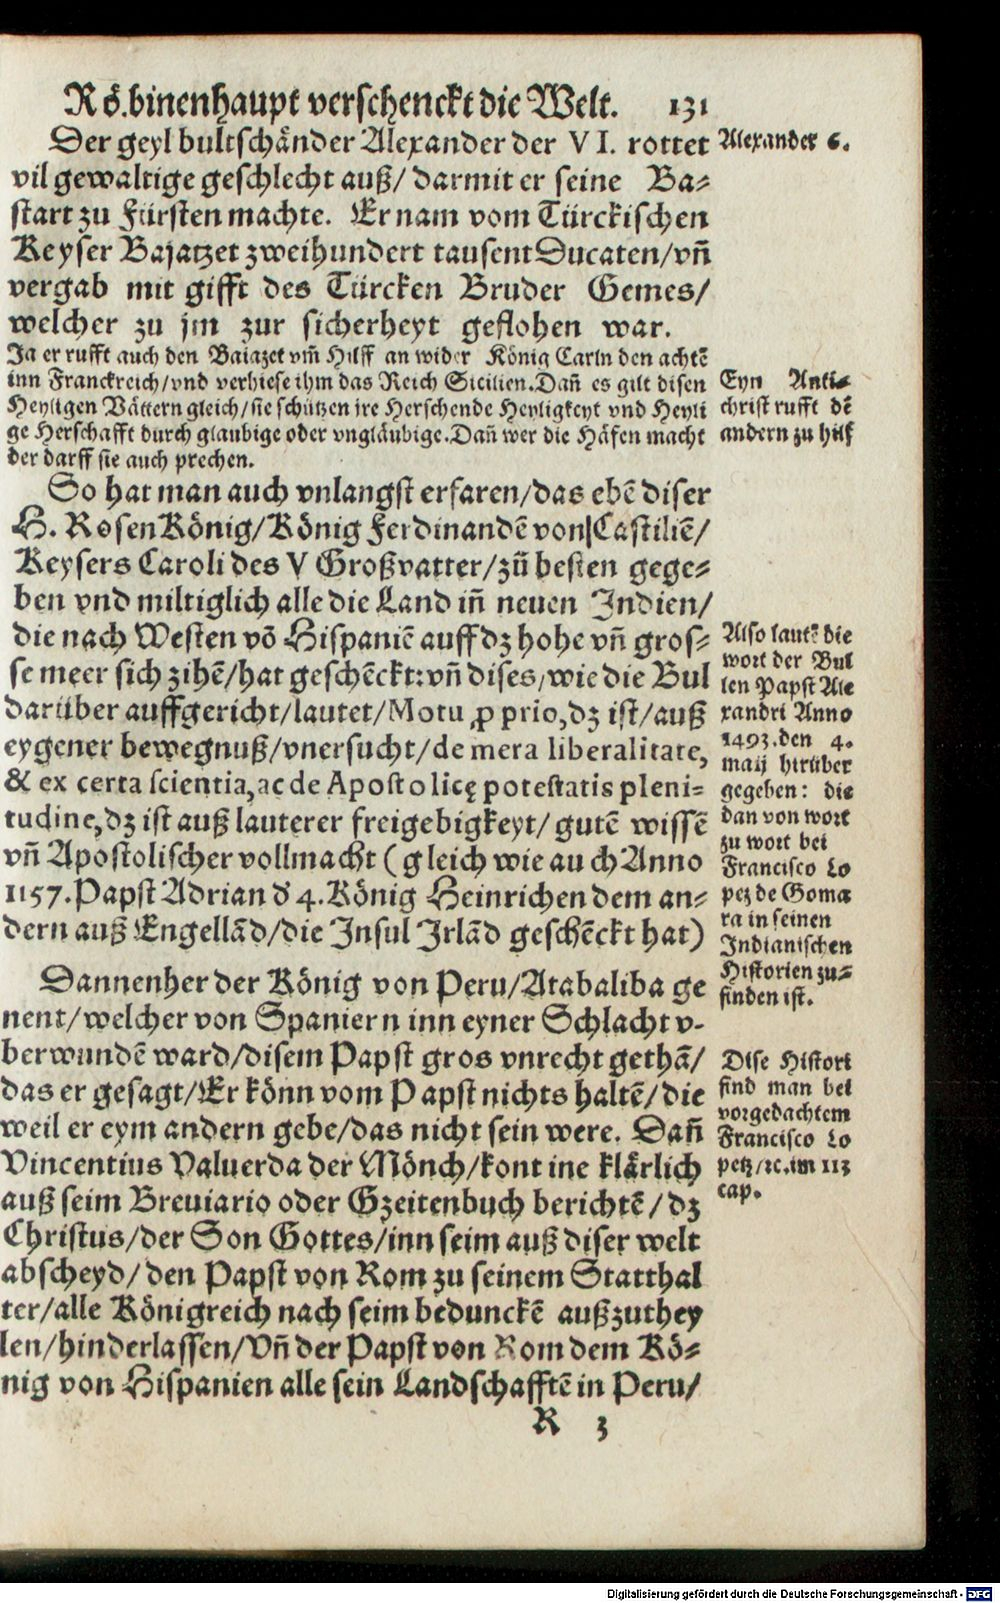 Rö.binenhaupt verschenckt die Welt. 131
Der geyl bultschänder Alexander der VI. rottet
vil gewaltige geschlecht auß/ darmit er seine Ba⸗
start zu Fürsten machte. Er nam vom Türckischen
Keyser Bajatzet zweihundert tausent Ducaten/ vñ
vergab mit gifft des Türcken Bruder Gemes/
welcher zu jm zur sicherheyt geflohen war.
Ja er rufft auch den Baiazet vm̃ Hilff an wider König Carln den achtẽ
inn Franckreich/ vnd verhiese ihm das Reich Sicilien. Dañ es gilt disen
Heyligen Vättern gleich/ sie schützen jre Herschende Heyligkeyt vnd Heyli
ge Herschafft durch glaubige oder vngläubige. Dañ wer die Häfen macht
der darff sie auch prechen.
So hat man auch vnlangst erfaren/ das ebẽ diser
H. Rosen König/ König Ferdinandẽ von Castiliẽ/
Keysers Caroli des V Großvatter/ zũ besten gege⸗
ben vnd miltiglich alle die Land iñ neuen Indien/
die nach Westen võ Hispaniẽ auff dz hohe vñ gros⸗
se meer sich zihẽ/ hat geschẽckt: vñ dises, wie die Bul
darüber auffgericht/ lautet/ Motu ꝓprio, dz ist/ auß
eygener bewegnuß/ vnersucht/ de mera liberalitate,
& ex certa scientia, ac de Apostolicę potestatis pleni⸗
tudine, dz ist auß lauterer freigebigkeyt/ gutẽ wissẽ
vñ Apostolischer vollmacht (gleich wie auch Anno
1157. Papst Adrian d' 4. König Heinrichen dem an⸗
dern auß Engellãd/ die Insul Irlãd geschẽckt hat)
Dannenher der König von Peru/ Atabaliba ge
nent/ welcher von Spaniern inn eyner Schlacht v-
berwundẽ ward/ disem Papst gros vnrecht gethã/
das er gesagt/ Er könn vom Papst nichts haltẽ/ die
weil er eym andern gebe/ das nicht sein were. Dañ
Vincentius Valuerda der Mönch/ kont ine klärlich
auß seim Breuiario oder Gzeitenbuch berichtẽ/ dz
Christus/ der Son Gottes/ inn seim auß diser welt
abscheyd/ den Papst von Rom zu seinem Statthal
ter/ alle Königreich nach seim bedunckẽ außzuthey
len/ hinderlassen/ Vñ der Papst von Rom dem Kö⸗
nig von Hispanien alle sein Landschafftẽ in Peru/
R 3
Alexander 6.
Eyn Anti⸗
christ rufft dẽ
andern zu hilf
Also lautẽ die
wort der Bul
len Papst Ale
xandri Anno
1493. den 4.
maij hirüber
gegeben: die
dan von wort
zu wort bei
Francisco Lo
pez de Goma
ra in seinen
Indianischen
Historien zu⸗
finden ist.
Dise Histori
find man bei
vorgedachtem
Francisco Lo
petz/ ꝛc. im 113
cap.
Digitalisierung gefördert durch die Deutsche Forschungsgemeinschaft - DFG